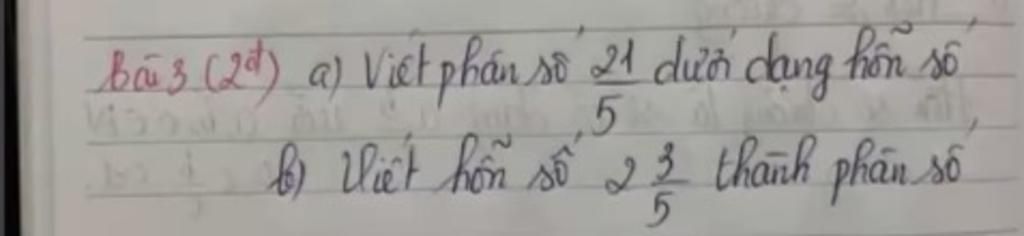 Bài 3 (2đ) a) Viết phân số 21/5 dưới dạng hỗn số
b) Viết hỗn số 2 3/5 thành phân số